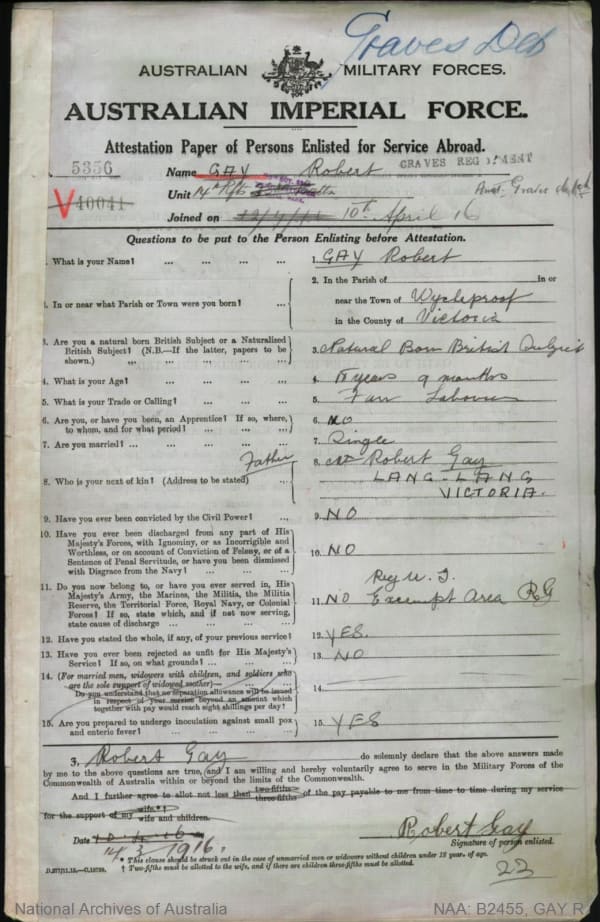 Graves Det
AUSTRALIAN MILITARY FORCES.
AUSTRALIAN IMPERIAL FORCE.
Attestation Paper of Persons Enlisted for Service Abroad.
5356
GRAVES REG
Name GAY Robert
V40041
Unit 14th Rfts
Aust. Graves
Joined on 10th April 16
Questions to be put to the Person Enlisting before Attestation.
1. What is your Name? ... ... ... ... 1. GAY Robert
2. In the Parish of in or
1. In or near what Parish or Town were you born? ... near the Town of Wycheproof
in the County of Victoria
3. Are you a natural born British Subject or a Naturalized
British Subject? (N.B.—If the latter, papers to be
shown.) 3. Natural Born British Subject
4. What is your Age? ... ... ... ... 4. years 9 months
5. What is your Trade or Calling? ... ... ... 5. Farm Labourer
6. Are you, or have you been, an Apprentice? If so, where,
to whom, and for what period? ... ... ... 6. NO
7. Are you married? ... ... ... ... 7. Single
Father
8. Who is your next of kin? (Address to be stated) ... 8. Robert Gay
LANG-LANG
VICTORIA.
9. Have you ever been convicted by the Civil Power? ... 9. NO
10. Have you ever been discharged from any part of His
Majesty's Forces, with Ignominy, or as Incorrigible and
Worthless, or on account of Conviction of Felony, or of a
Sentence of Penal Servitude, or have you been dismissed
with Disgrace from the Navy? ... ... ... 10. NO
11. Do you now belong to, or have you ever served in, His
Majesty's Army, the Marines, the Militia, the Militia
Reserve, the Territorial Force, Royal Navy, or Colonial
Forces? If so, state which, and if not now serving,
state cause of discharge ... ... ... ... 11. NO Exempt Area RG
12. Have you stated the whole, if any, of your previous service? 12. YES.
13. Have you ever been rejected as unfit for His Majesty's
Service? If so, on what grounds? ... ... ... 13. NO
14. (For married men, widowers with children, and soldiers who
are the sole support of widowed mother)—
Do you understand that no separation allowance will be issued
in respect of your service beyond an amount which
together with pay would reach eight shillings per day? 14.
15. Are you prepared to undergo inoculation against small pox
and enteric fever? ... ... ... ... 15. YES
Robert Gay do solemnly declare that the above answers made
by me to the above questions are true, and I am willing and hereby voluntarily agree to serve in the Military Forces of the
Commonwealth of Australia within or beyond the limits of the Commonwealth.
And I further agree to allot not less than two-fifths three-fifths of the pay payable to me from time to time during my service
for the support of my wife.*† wife and children.
Date 14 3 1916. Robert Gay
Signature of person enlisted.
* This clause should be struck out in the case of unmarried men or widowers without children under 18 years of age.
† Two-fifths must be allotted to the wife, and if there are children three-fifths must be allotted.
22
National Archives of Australia
NAA: B2455, GAY R